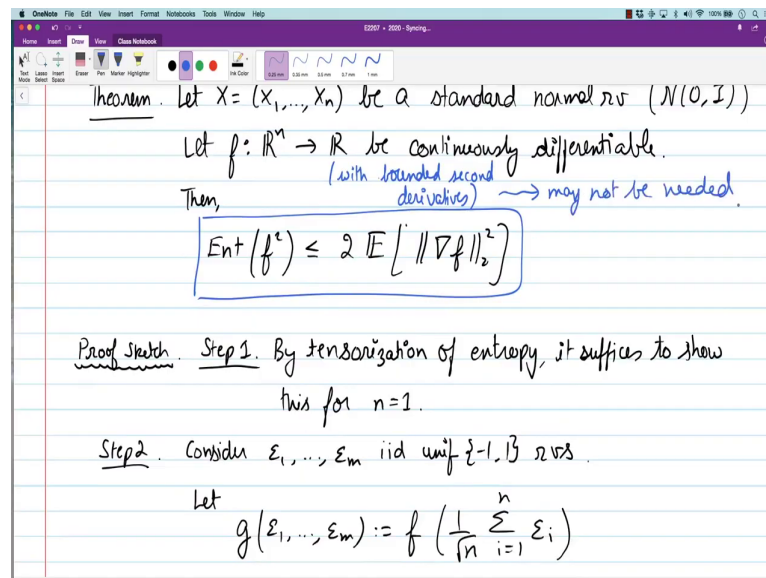 OneNote File Edit View Insert Format Notebooks Tools Window Help
100%
E2207 • 2020 - Syncing...
Home Insert Draw View Class Notebook
Text Mode Lasso Select Insert Space Eraser Pen Marker Highlighter Ink Color 0.25 mm 0.35 mm 0.5 mm 0.7 mm 1 mm
Theorem. Let X = (X₁,..., Xₙ) be a standard normal rv (N(0, I))
Let f: ℝⁿ → ℝ be continuously differentiable.
(with bounded second
derivatives) ⟿ may not be needed.
Then,
Ent(f²) ≤ 2 𝔼[ ‖∇f‖₂² ]
Proof Sketch. Step 1. By tensorization of entropy, it suffices to show
this for n=1.
Step 2. Consider ε₁, ..., εₘ iid unif {-1, 1} rvs.
Let
g(ε₁, ..., εₘ) := f ( 1/√n Σᵢ₌₁ⁿ εᵢ )